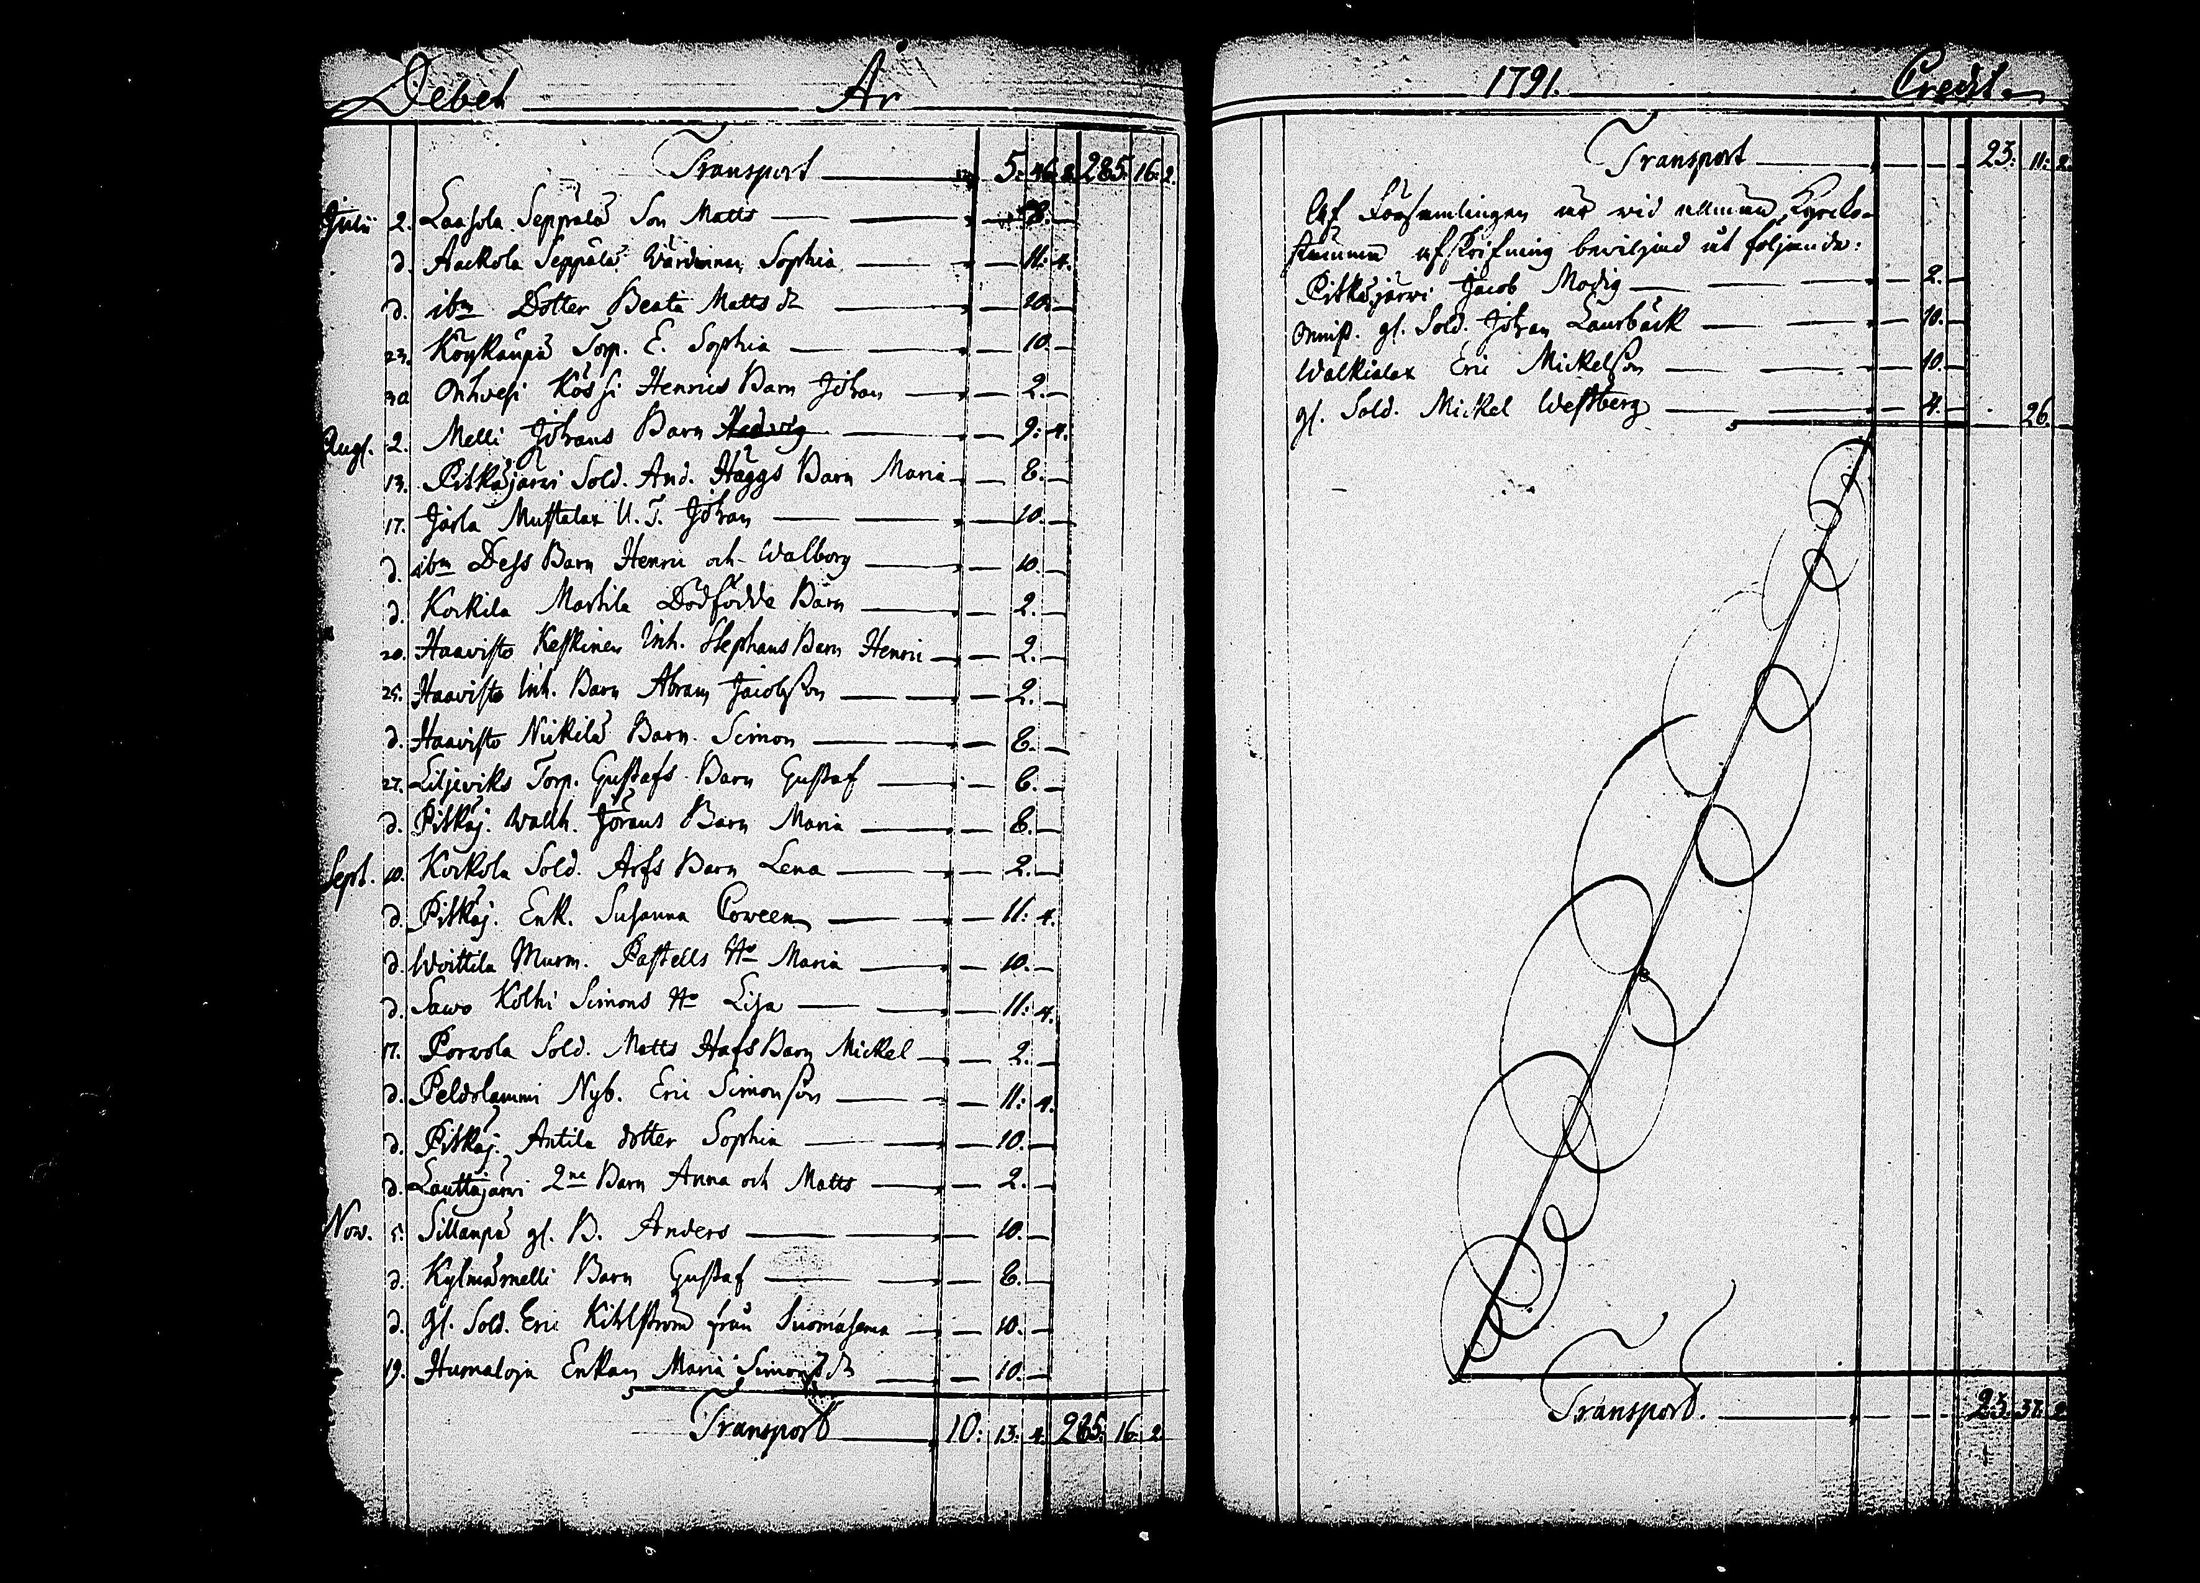 Debet År
Transport 5: 46. 8. 285. 16. 2.
Julii 2. Laasola Seppälä Son Matts — 8. —
d. Aackola Seppälä Värdinnan Sophia — 11: 4.
d. ibm Dotter Beata Matts dr — 10. —
23. Köykänpä Torp. E. Sophia — 10. —
30 Onhvesi Kössi Henrics Barn Johan — 2. —
Augs. 2. Melli Johans Barn Hedvig — 9: 4.
13. Pitkäjärvi Sold. And. Häggs Barn Maria — 8. —
17. Järla Mustalax U. T. Johan — 10. —
d. ibm Dess Barn Henric och Walborg — 10. —
d. Korkila Martila Dödfödde Barn — 2. —
20. Haavisto Keskinen Inh. Stephans Barn Henric — 2. —
25. Haavisto Inh. Barn Abram Jacobsson — 2. —
d. Haavisto Nickilä Barn Simon — 8. —
27. Liljeviks Torp. Gustafs Barn Gustaf — 6. —
d. Pitkäj. Wallh. Jörans Barn Maria — 8. —
Sept. 10. Korkola Sold. Arfs Barn Lena — 2. —
d. Pitkäj. Enk. Susanna Coween — 11: 4.
d. Woittila Murm. Pastells Ho Maria — 10. —
d. Sawo Kolhi Simons Ho Lisa — 11: 4.
17. Porvola Sold. Matts Hafs Barn Mickel — 2. —
d. Peldolammi Nyb. Eric Simonsson — 11: 4.
d. Pitkäj. Antila dotter Sophia — 10. —
d. Lauttajärvi 2ne Barn Anna och Matts — 2. —
Nov. 5. Sillanpä gl. B. Anders — 10. —
d. Kylmämelli Barn Gustaf — 8. —
d. Gl. Sold. Eric Kihlström från Suomasema — 10. —
19. Humaloja Enkan Maria Simons dr — 10. —
Transport 10: 13: 4. 285. 16. 2.
1791. Credit
Transport — 23: 11: 2.
Af Församlingen är vid allmän Kyrko-
stämma afskrifning beviljad åt följande:
Pitkäjärvi Jacob Modig — 2. —
gl. Sold. Johan Laurbäck — 10. —
Walkialax Eric Mickelsson — 10. —
gl. Sold. Mickel Westberg — 4. — 26.
Transport. — 23. 37. 2.